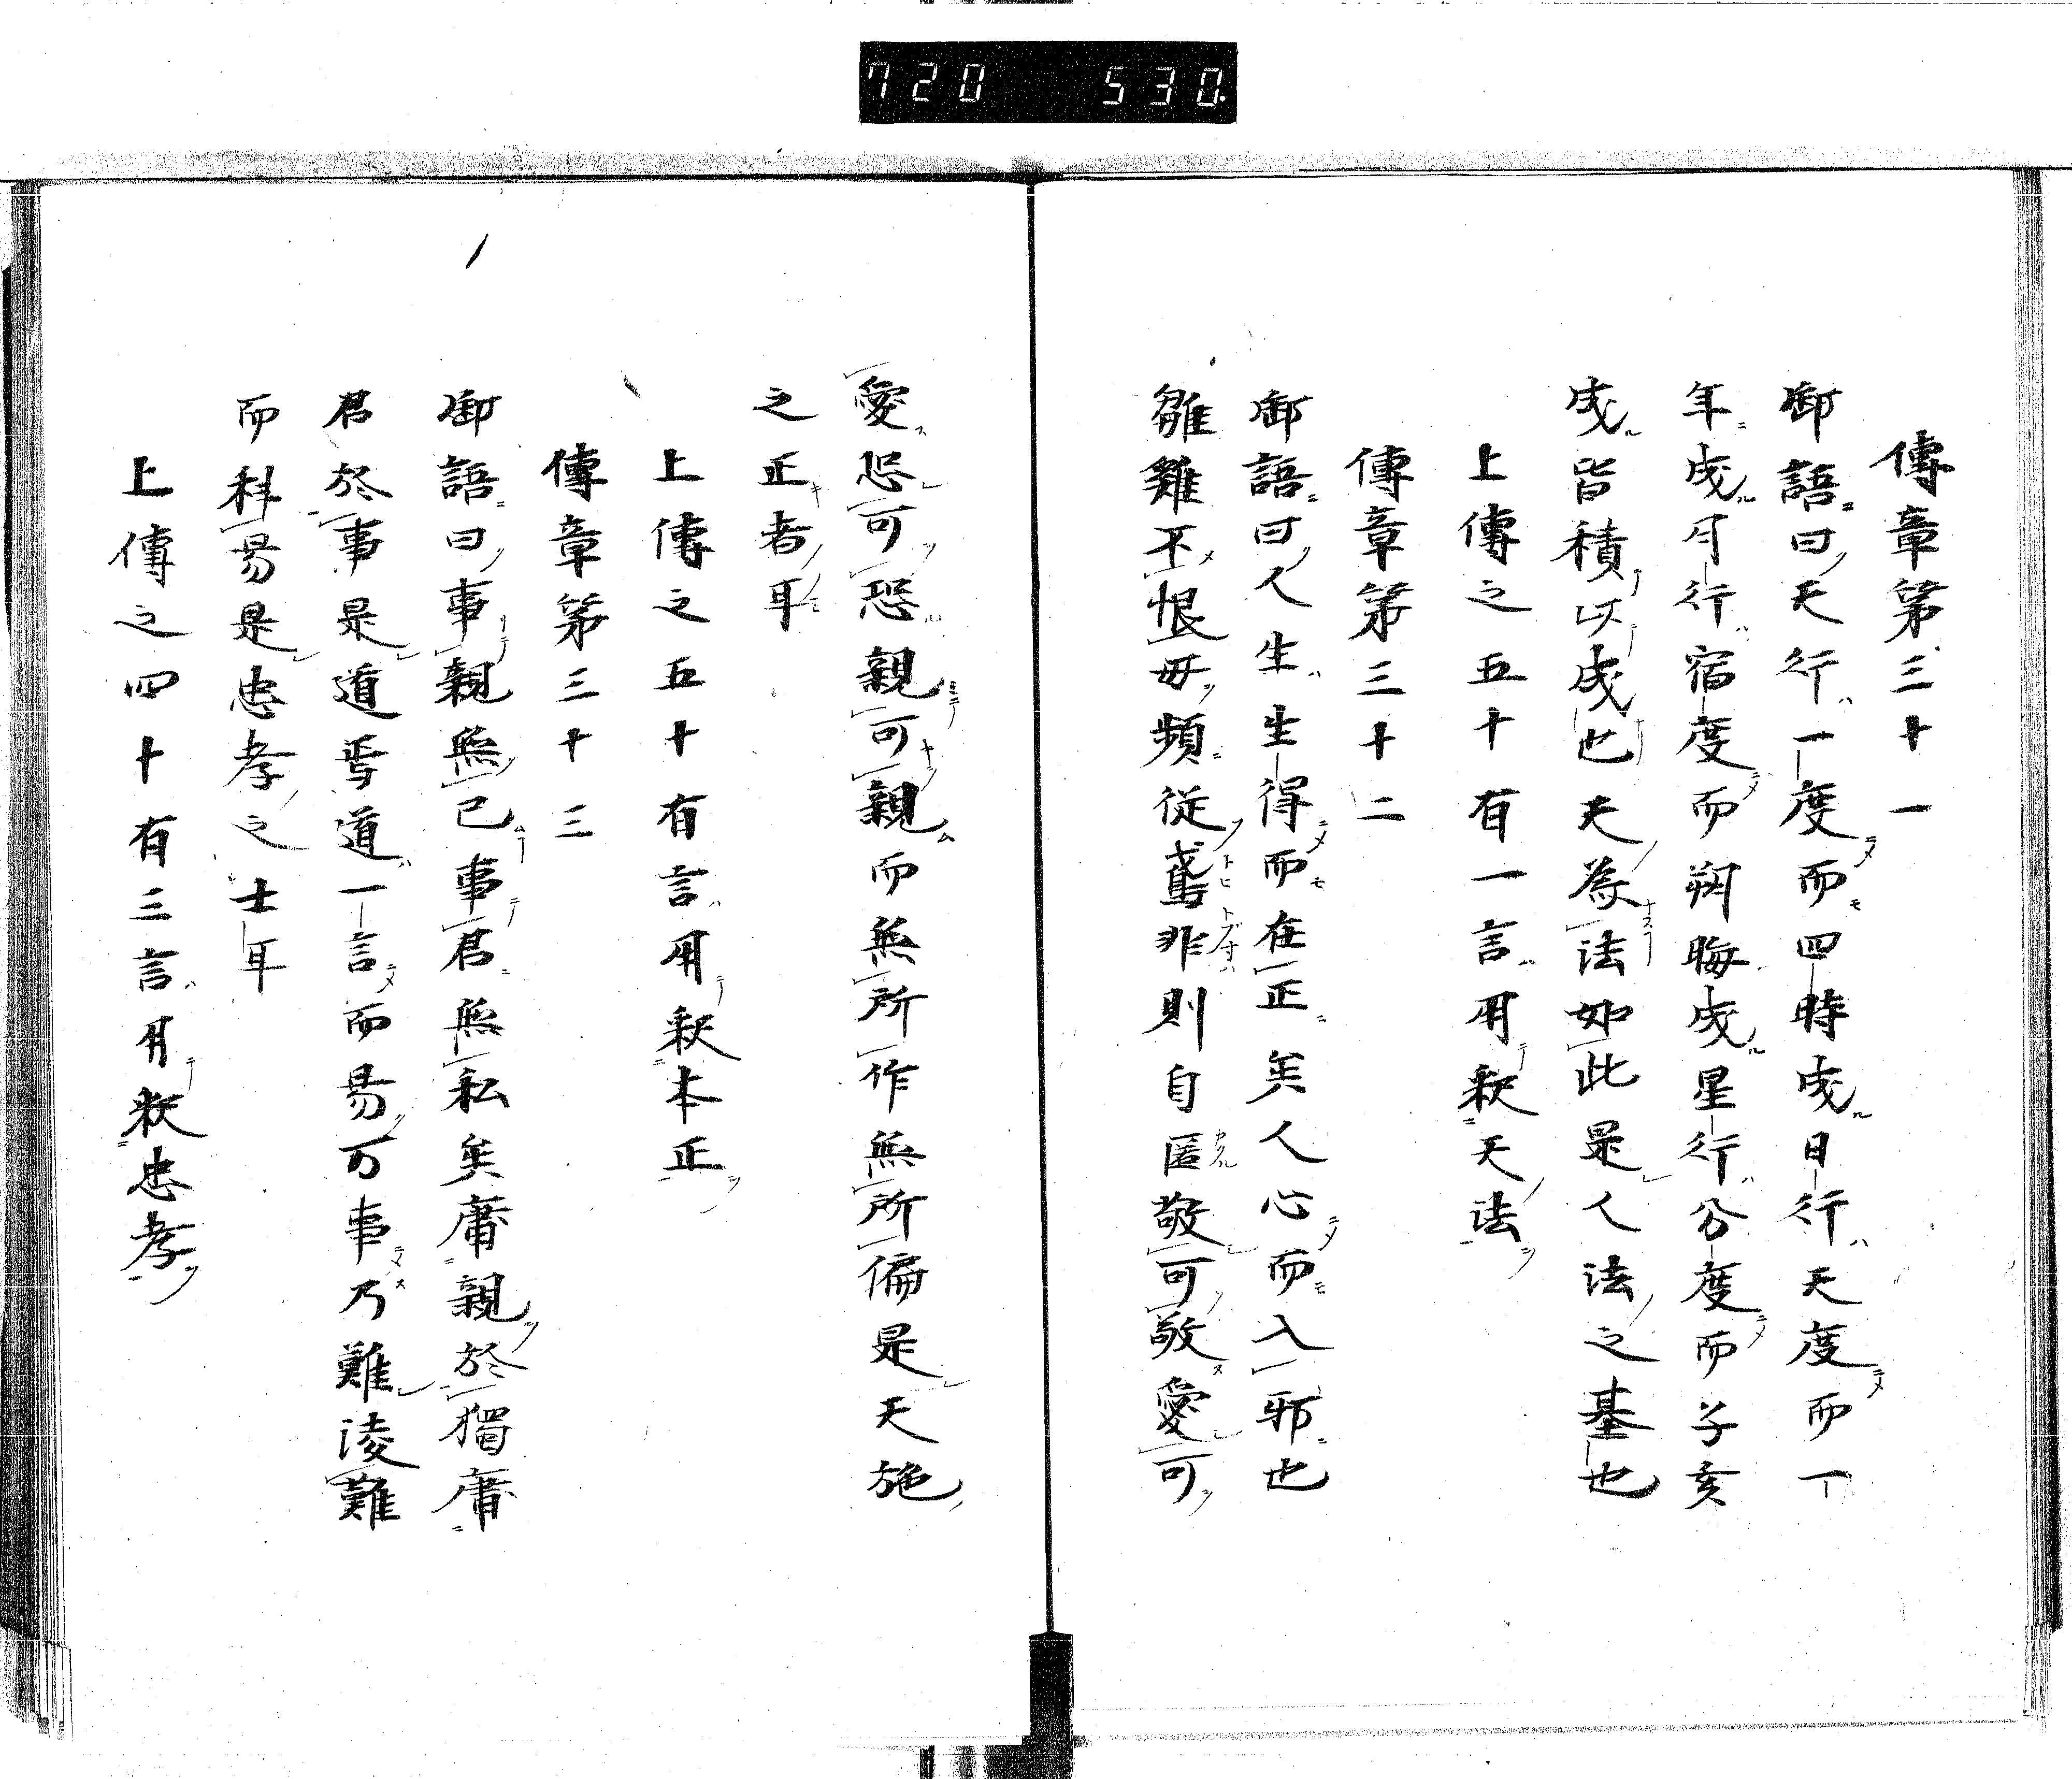 720 530.
傳章第三十一
御語曰天行一度而四時成日行天度而一
年成月行宿度而朔晦成星行分度而子亥
成皆積以成也夫為法如此是人法之基也
上傳之五十有一言用釈天法
傳章第三十二
御語曰人生生得而在正矣人心而入邪也
雛雞不恨毋頻從鳶非則自匿敬可敬愛可
愛恐可恐親可親而無所作無所偏是天施
之正者耳
上傳之五十有言用釈本正
傳章第三十三
御語曰事親無已事君無私矣庸親於獨庸
君於事是道焉道一言而易万事乃難淩難
而科易是忠孝之士耳
上傳之四十有三言用釈忠孝